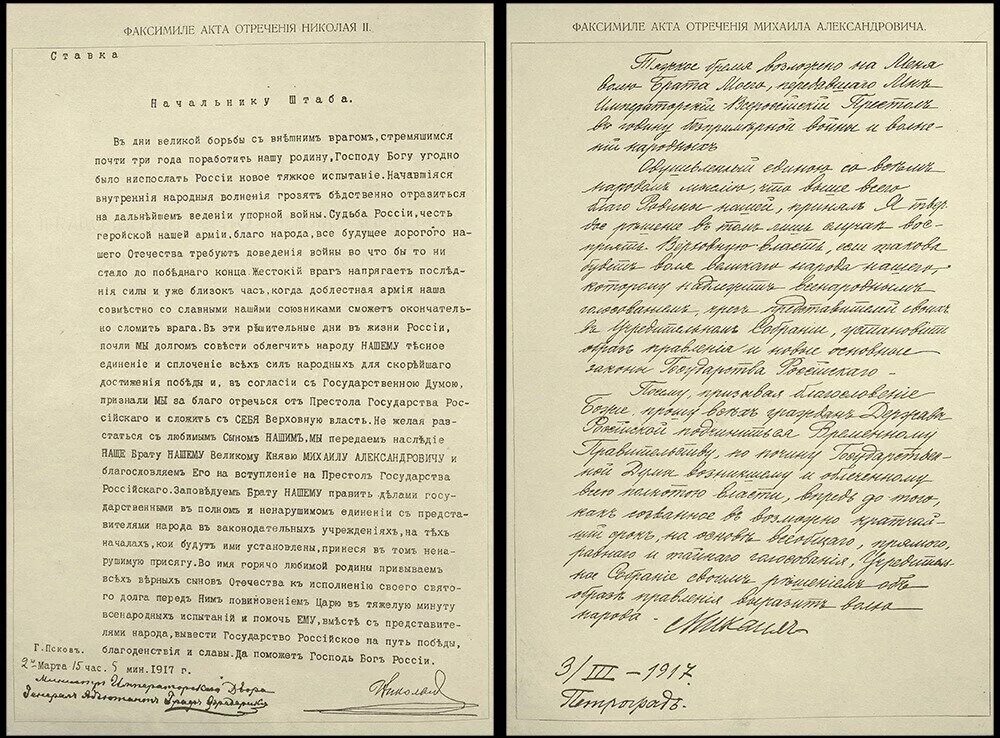 ФАКСИМИЛЕ АКТА ОТРЕЧЕНІЯ НИКОЛАЯ II.
Ставка
Начальнику Штаба.
Въ дни великой борьбы съ внѣшнимъ врагомъ,стремящимся
почти три года поработить нашу родину,Господу Богу угодно
было ниспослать Россіи новое тяжкое испытаніе.Начавшіяся
внутреннія народныя волненія грозятъ бѣдственно отразиться
на дальнѣйшемъ веденіи упорной войны.Судьба Россіи,честь
геройской нашей арміи,благо народа,все будущее дорогого на-
шего Отечества требуютъ доведенія войны во что бы то ни
стало до побѣднаго конца.Жестокій врагъ напрягаетъ послѣд-
нія силы и уже близокъ часъ,когда доблестная армія наша
совмѣстно со славными нашими союзниками сможетъ окончатель-
но сломить врага.Въ эти рѣшительные дни въ жизни Россіи,
почли МЫ долгомъ совѣсти облегчить народу НАШЕМУ тѣсное
единеніе и сплоченіе всѣхъ силъ народныхъ для скорѣйшаго
достиженія побѣды и, въ согласіи съ Государственною Думою,
признали МЫ за благо отречься отъ Престола Государства Рос-
сійскаго и сложить съ СЕБЯ Верховную власть.Не желая раз-
статься съ любимымъ Сыномъ НАШИМЪ,МЫ передаемъ наслѣдіе
НАШЕ Брату НАШЕМУ Великому Князю МИХАИЛУ АЛЕКСАНДРОВИЧУ и
благословляемъ Его на вступленіе на Престолъ Государства
Россійскаго.Заповѣдуемъ Брату НАШЕМУ править дѣлами госу-
дарственными въ полномъ и ненарушимомъ единеніи съ предста-
вителями народа въ законодательныхъ учрежденіяхъ,на тѣхъ
началахъ,кои будутъ ими установлены,принеся въ томъ нена-
рушимую присягу.Во имя горячо любимой родины призываемъ
всѣхъ вѣрныхъ сыновъ Отечества къ исполненію своего свято-
го долга передъ Нимъ повиновеніемъ Царю въ тяжелую минуту
всенародныхъ испытаній и помочь ЕМУ,вмѣстѣ съ представите-
лями народа,вывести Государство Россійское на путь побѣды,
благоденствія и славы.Да поможетъ Господь Богъ Россіи.
Г.Псковъ.
2го Марта 15 час. 5 мин.1917 г.
Министръ Императорскаго Двора
Генералъ Адъютантъ Графъ Фредериксъ
Николай
ФАКСИМИЛЕ АКТА ОТРЕЧЕНІЯ МИХАИЛА АЛЕКСАНДРОВИЧА.
Тяжкое бремя возложено на Меня
волею Брата Моего, передавшаго Мнѣ
Императорскій Всероссійскій Престолъ
въ годину безпримѣрной войны и волне-
ній народныхъ
Одушевленный единою со всѣмъ
народомъ мыслію, что выше всего
благо Родины нашей, принялъ Я твер-
дое рѣшеніе въ томъ лишь случаѣ вос-
принять Верховную власть, если такова
будетъ воля великаго народа нашего,
которому надлежитъ всенароднымъ
голосованіемъ, чрезъ представителей своихъ
въ Учредительномъ Собраніи, установить
образъ правленія и новые основные
законы Государства Россійскаго.
Посему, призывая благословеніе
Божіе, прошу всѣхъ гражданъ Державы
Россійской подчиниться Временному
Правительству, по почину Государствен-
ной Думы возникшему и облеченному
всею полнотою власти, впредь до того,
какъ созванное въ возможно кратчай-
шій срокъ, на основѣ всеобщаго, прямого,
равнаго и тайнаго голосованія, Учредитель-
ное Собраніе своимъ рѣшеніемъ объ
образѣ правленія выразитъ волю
народа.
Михаилъ
3/III - 1917
Петроградъ.